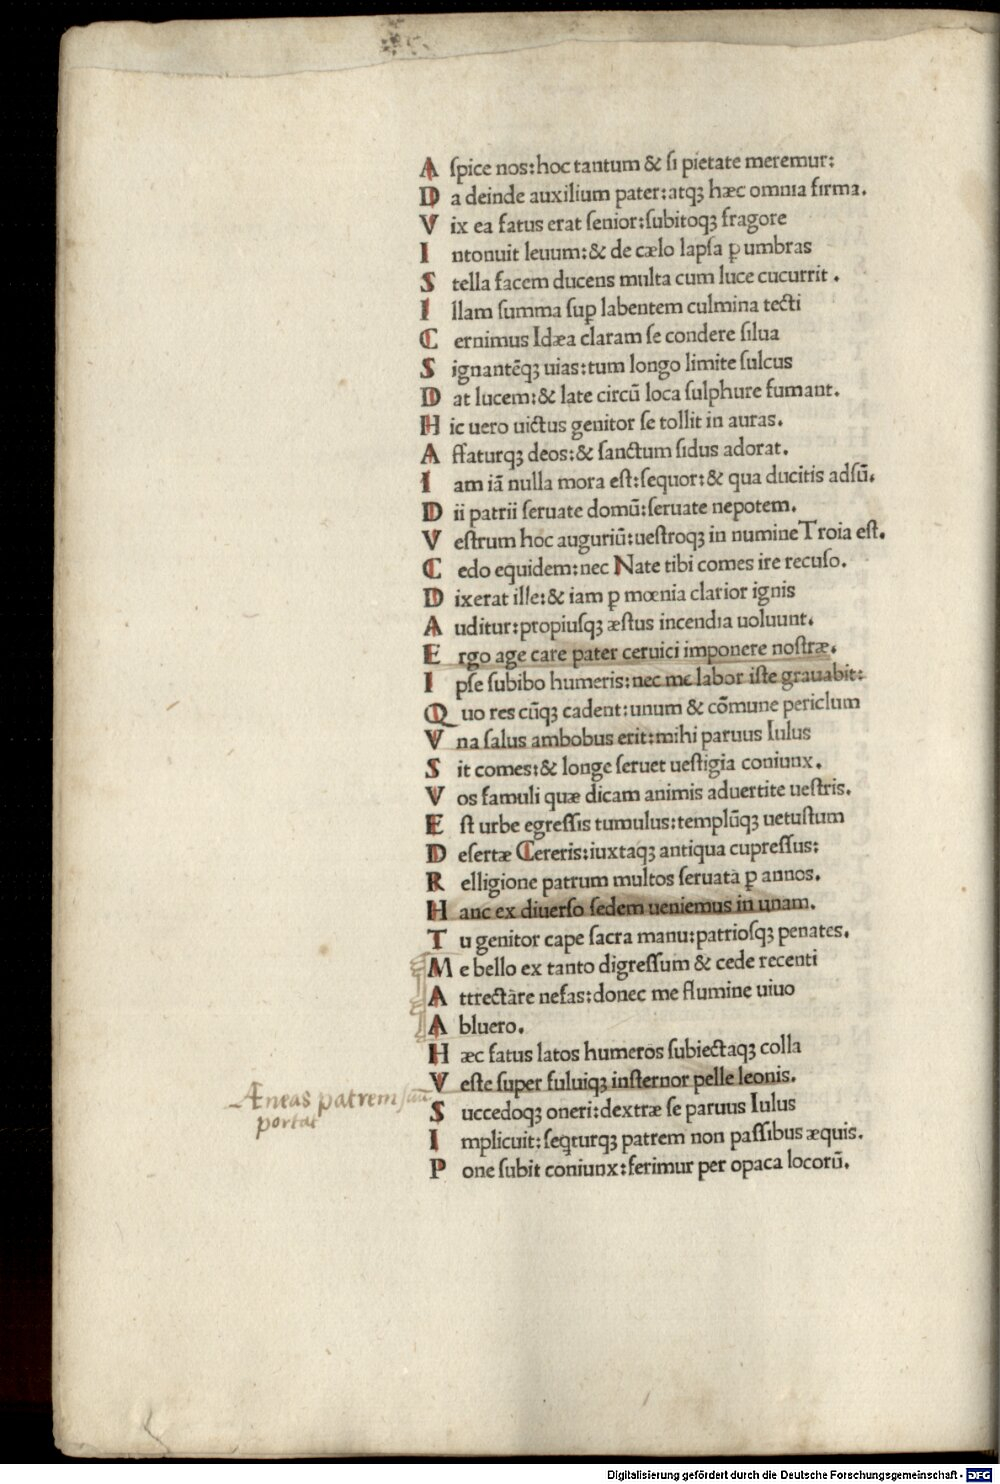 A ſpice nos:hoc tantum & ſi pietate meremur:
D a deinde auxilium pater:atqꝫ hæc omnia firma.
V ix ea fatus erat ſenior:ſubitoqꝫ fragore
I ntonuit leuum:& de cælo lapſa ꝑ umbras
S tella facem ducens multa cum luce cucurrit .
I llam ſumma ſuꝑ labentem culmina tecti
C ernimus Idæa claram ſe condere ſilua
S ignantēqꝫ uias:tum longo limite ſulcus
D at lucem:& late circū loca ſulphure fumant.
H ic uero uictus genitor ſe tollit in auras.
A ffaturqꝫ deos:& ſanctum ſidus adorat.
I am iā nulla mora eſt:ſequor:& qua ducitis adſū.
D ii patrii ſeruate domū:ſeruate nepotem.
V eſtrum hoc auguriū:ueſtroqꝫ in numine Troia eſt.
C edo equidem:nec Nate tibi comes ire recuſo.
D ixerat ille:& iam ꝑ mœnia clarior ignis
A uditur:propiuſqꝫ æſtus incendia uoluunt.
E rgo age care pater ceruici imponere noſtræ.
I pſe ſubibo humeris:nec me labor iſte grauabit:
Q uo res cūqꝫ cadent:unum & cōmune periclum
V na ſalus ambobus erit:mihi paruus Iulus
S it comes:& longe ſeruet ueſtigia coniunx.
V os famuli quæ dicam animis aduertite ueſtris.
E ſt urbe egreſſis tumulus:templūqꝫ uetuſtum
D eſertæ Cereris:iuxtaqꝫ antiqua cupreſſus:
R elligione patrum multos ſeruata ꝑ annos.
H anc ex diuerſo ſedem ueniemus in unam.
T u genitor cape ſacra manu:patrioſqꝫ penates.
M e bello ex tanto digreſſum & cede recenti
A ttrectare nefas:donec me flumine uiuo
A bluero.
H æc fatus latos humeros ſubiectaqꝫ colla
V eſte ſuper fuluiqꝫ inſternor pelle leonis.
Æneas patrem ſuū
portat
S uccedoqꝫ oneri:dextræ ſe paruus Iulus
I mplicuit:ſeqturqꝫ patrem non paſſibus æquis.
P one ſubit coniunx:ferimur per opaca locorū.
Digitalisierung gefördert durch die Deutsche Forschungsgemeinschaft - DFG